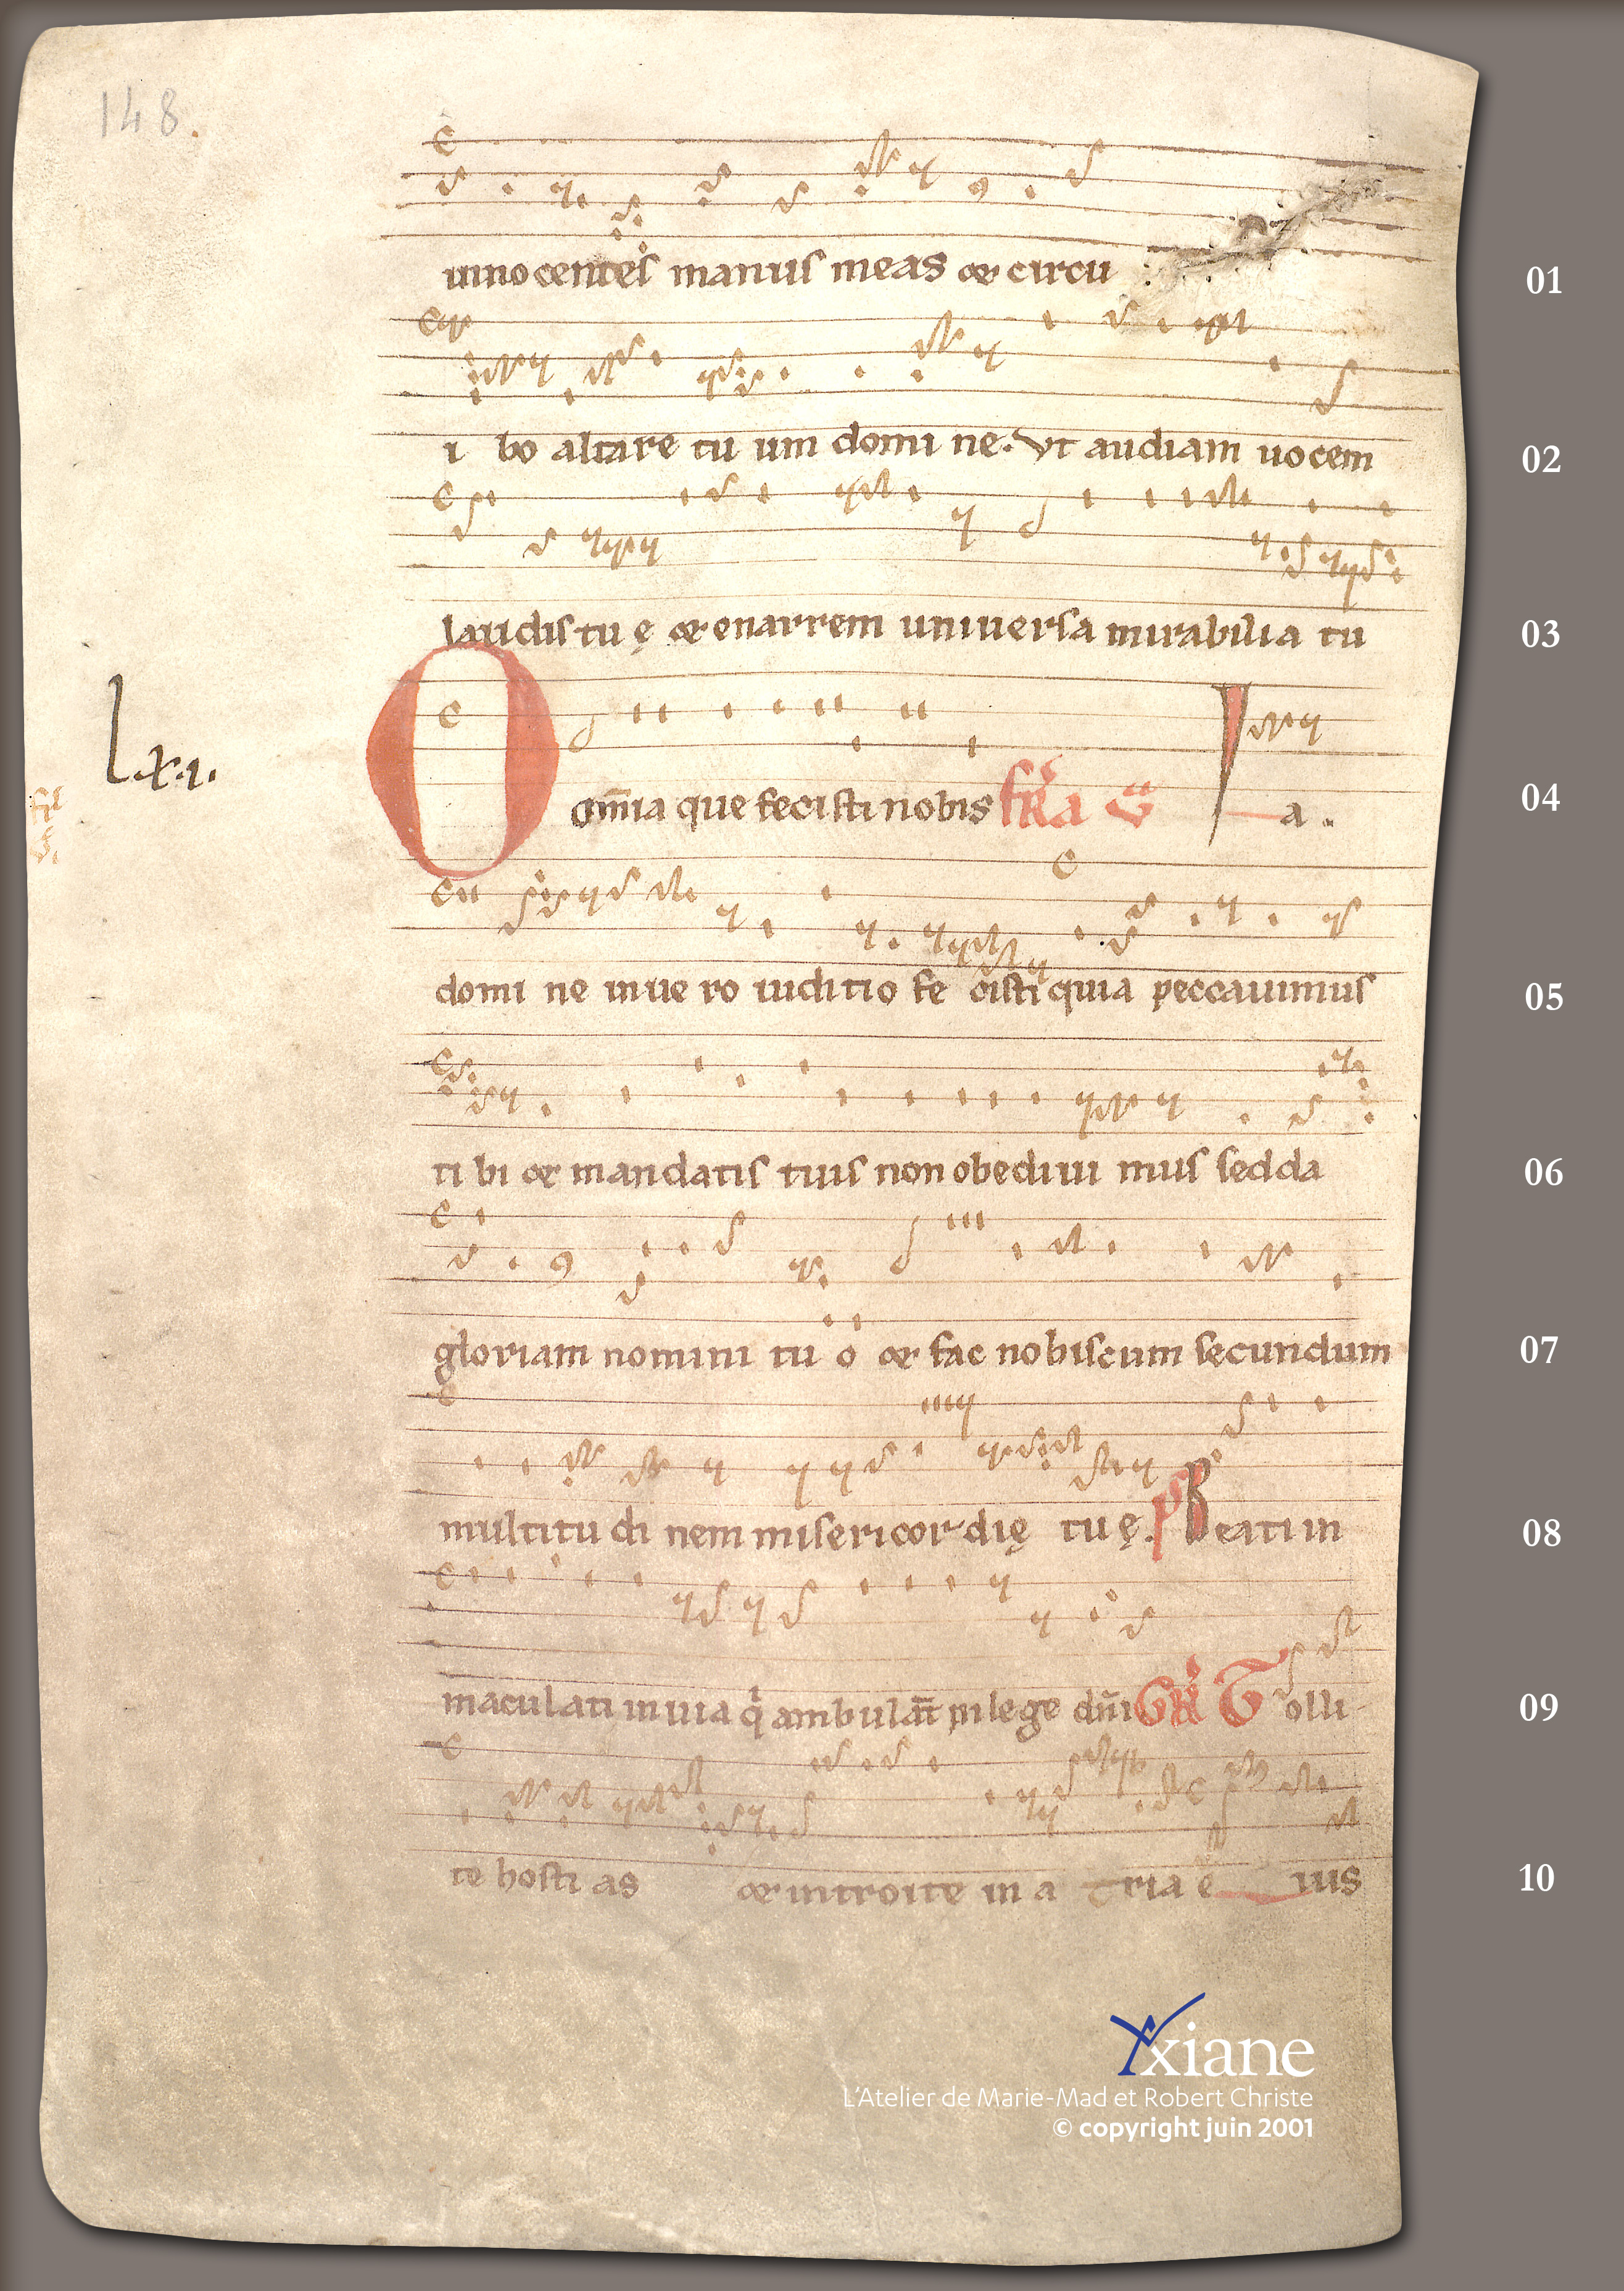 148.
innocentes manus meas et circu 01
i bo altare tu um domi ne. Vt audiam uocem 02
laudis tu ę et enarrem uniuersa mirabilia tu 03
L.x.i.
O omīa que fecisti nobis a . 04
domi ne in ue ro iuditio fe cisti quia peccauimus 05
ti bi et mandatis tuis non obediui mus sed da 06
gloriam nomini tu o et fac nobiscum secundum 07
multitu di nem misericor die̜ tu ę. ps Beati in 08
maculati in uia q̍ ambulāt in lege dn̄i GR Tolli 09
te hosti as et introite in a tria e ius 10
Yxiane
L'Atelier de Marie-Mad et Robert Christe
© copyright juin 2001